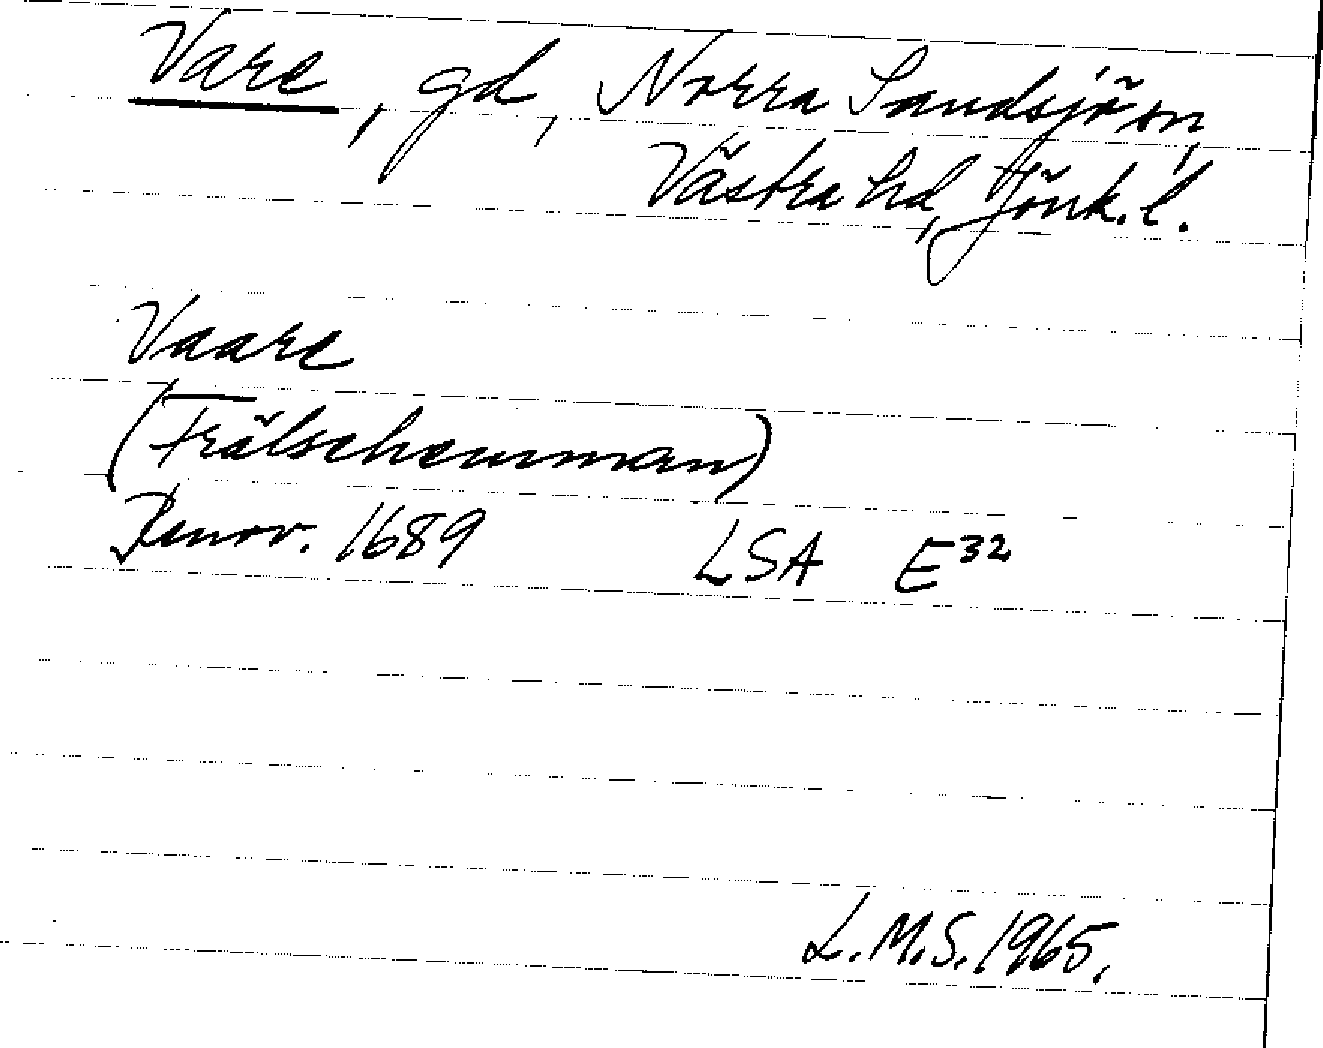 Vare, gd, Norra Sandsjö sn,
Västra hd, Jönk. l.
Vaare
(Frälsehemman)
Renov. 1689 LSA E32
L.M.S. 1965.